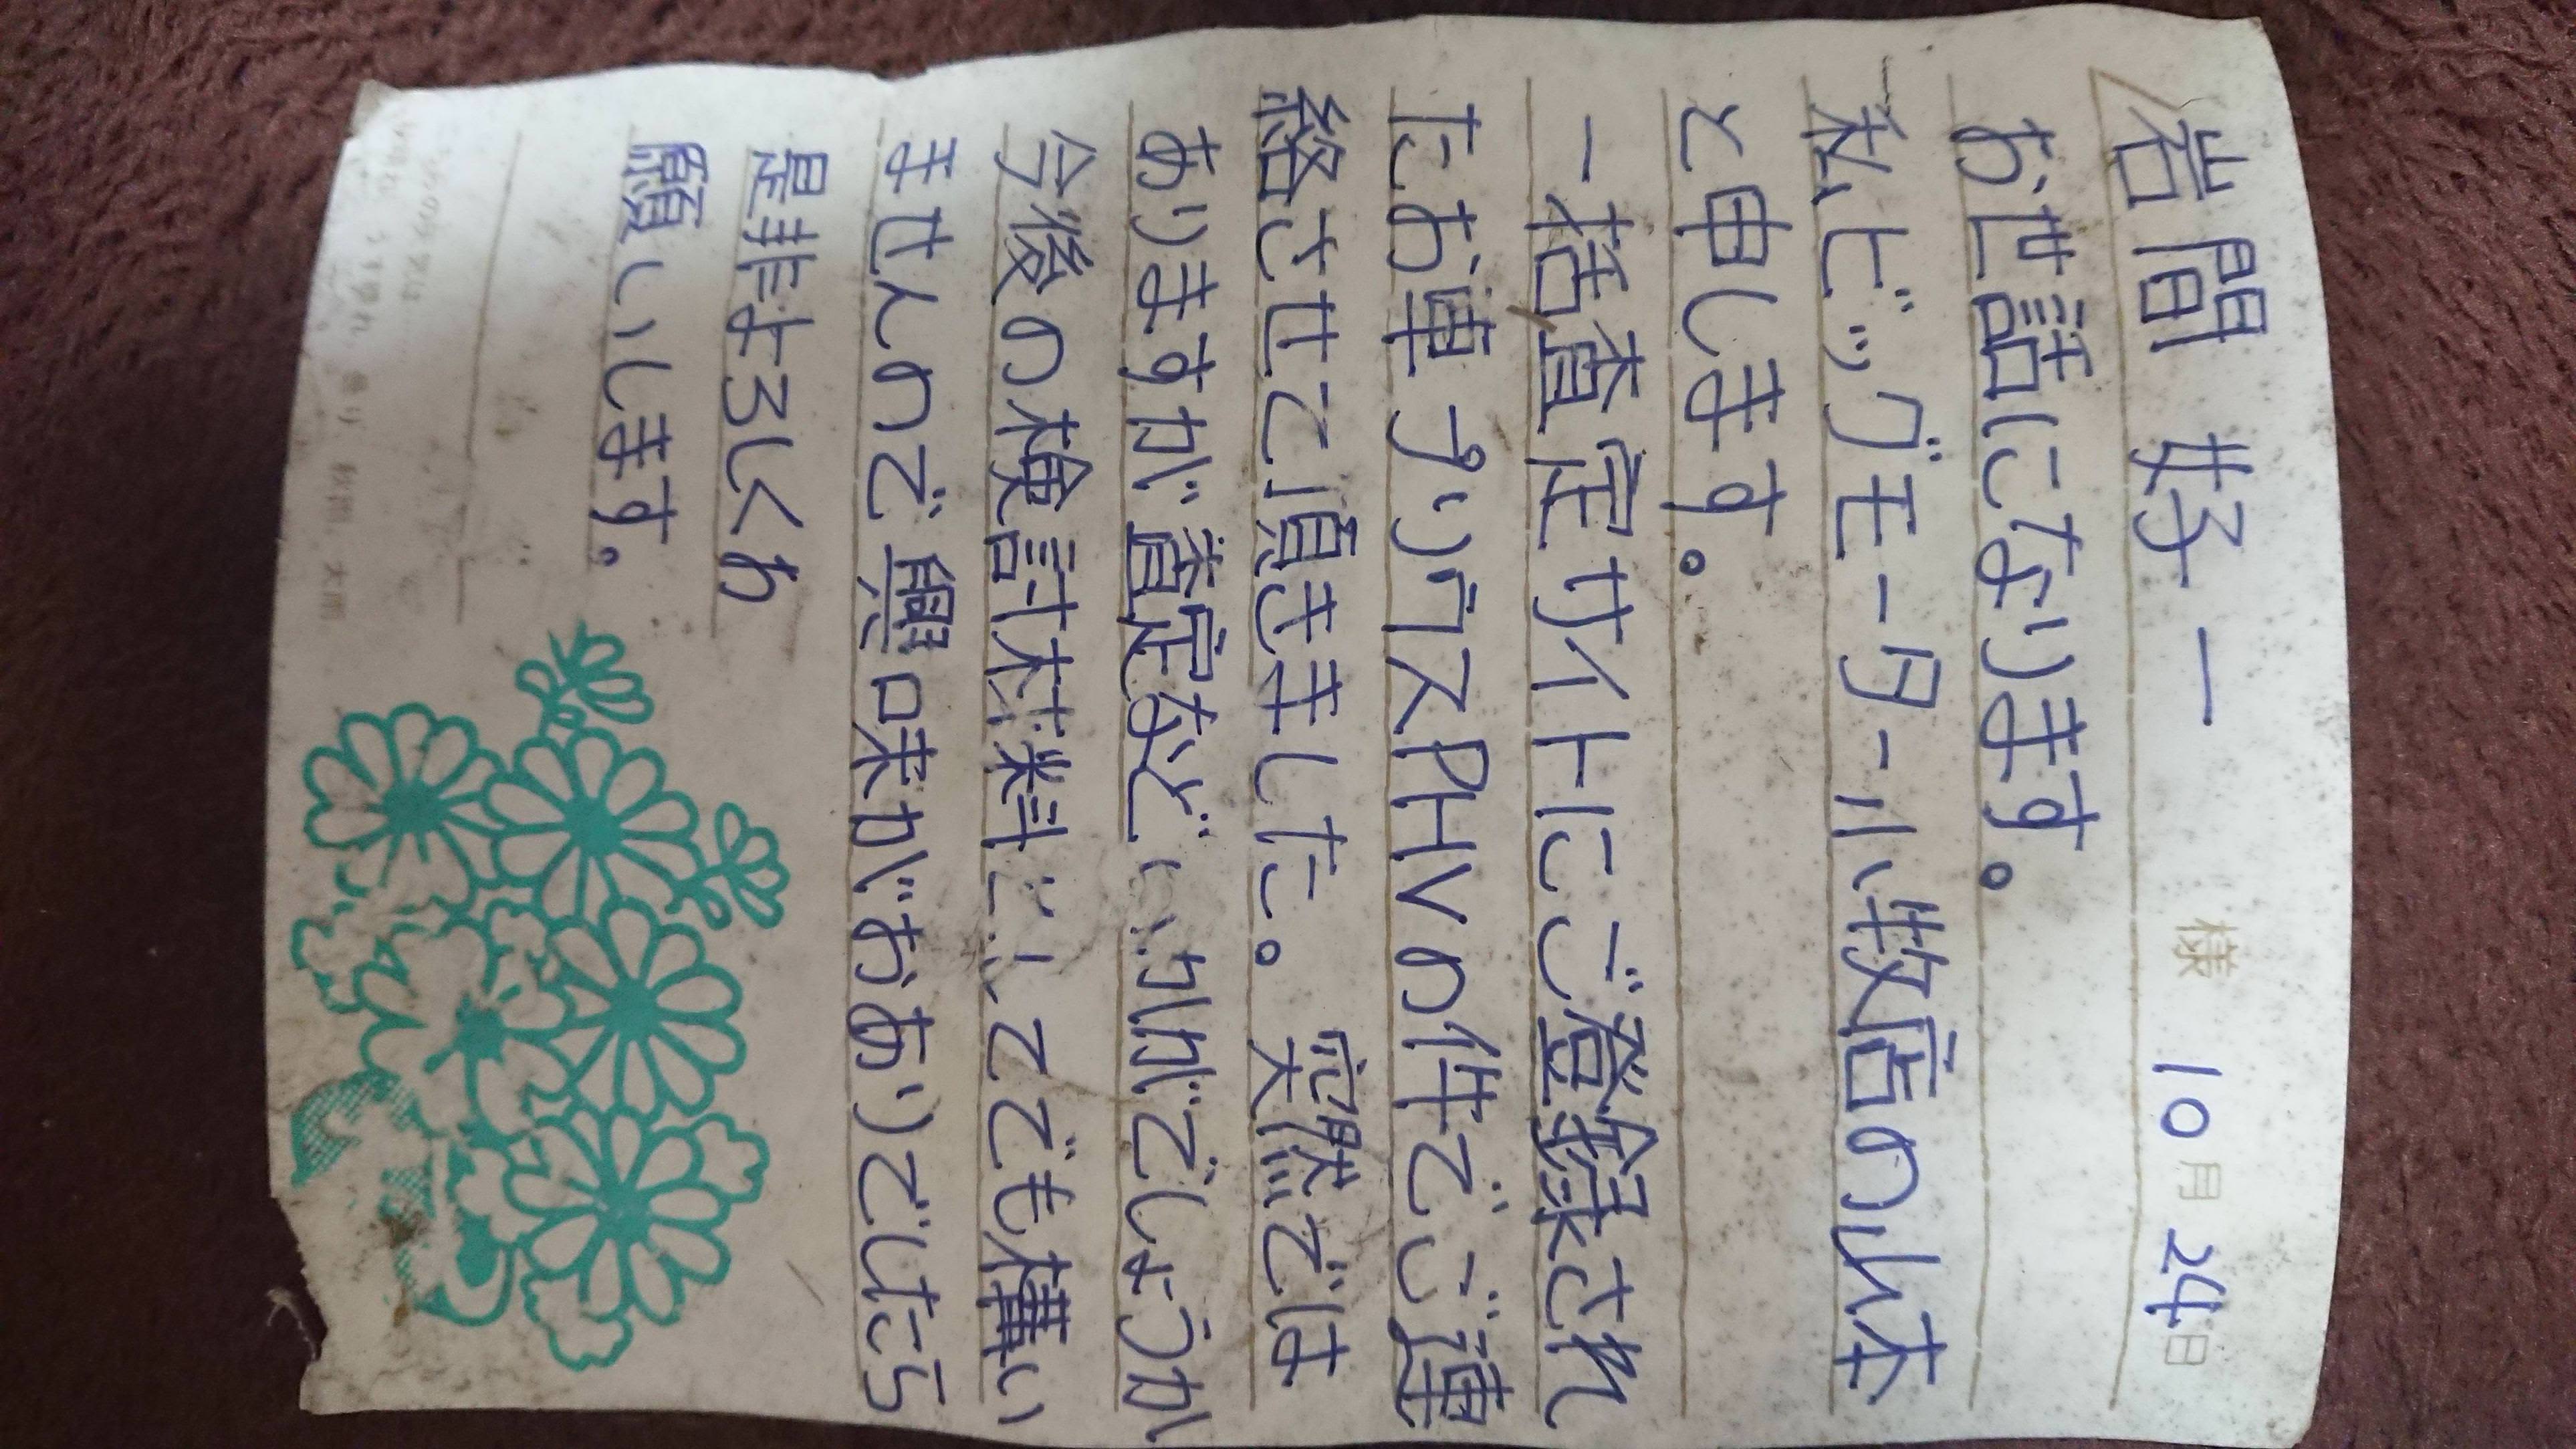 岩間 好一 様 10月24日
お世話になります。
私ビッグモーター小牧店の山本
と申します。
一括査定サイトにご登録され
たお車プリウスPHVの件でご連
絡させて頂きました。突然では
ありますが査定などいかがでしょうか
今後の検討材料としてでも構い
ませんので興味がおありでしたら
是非よろしくお
願いします。